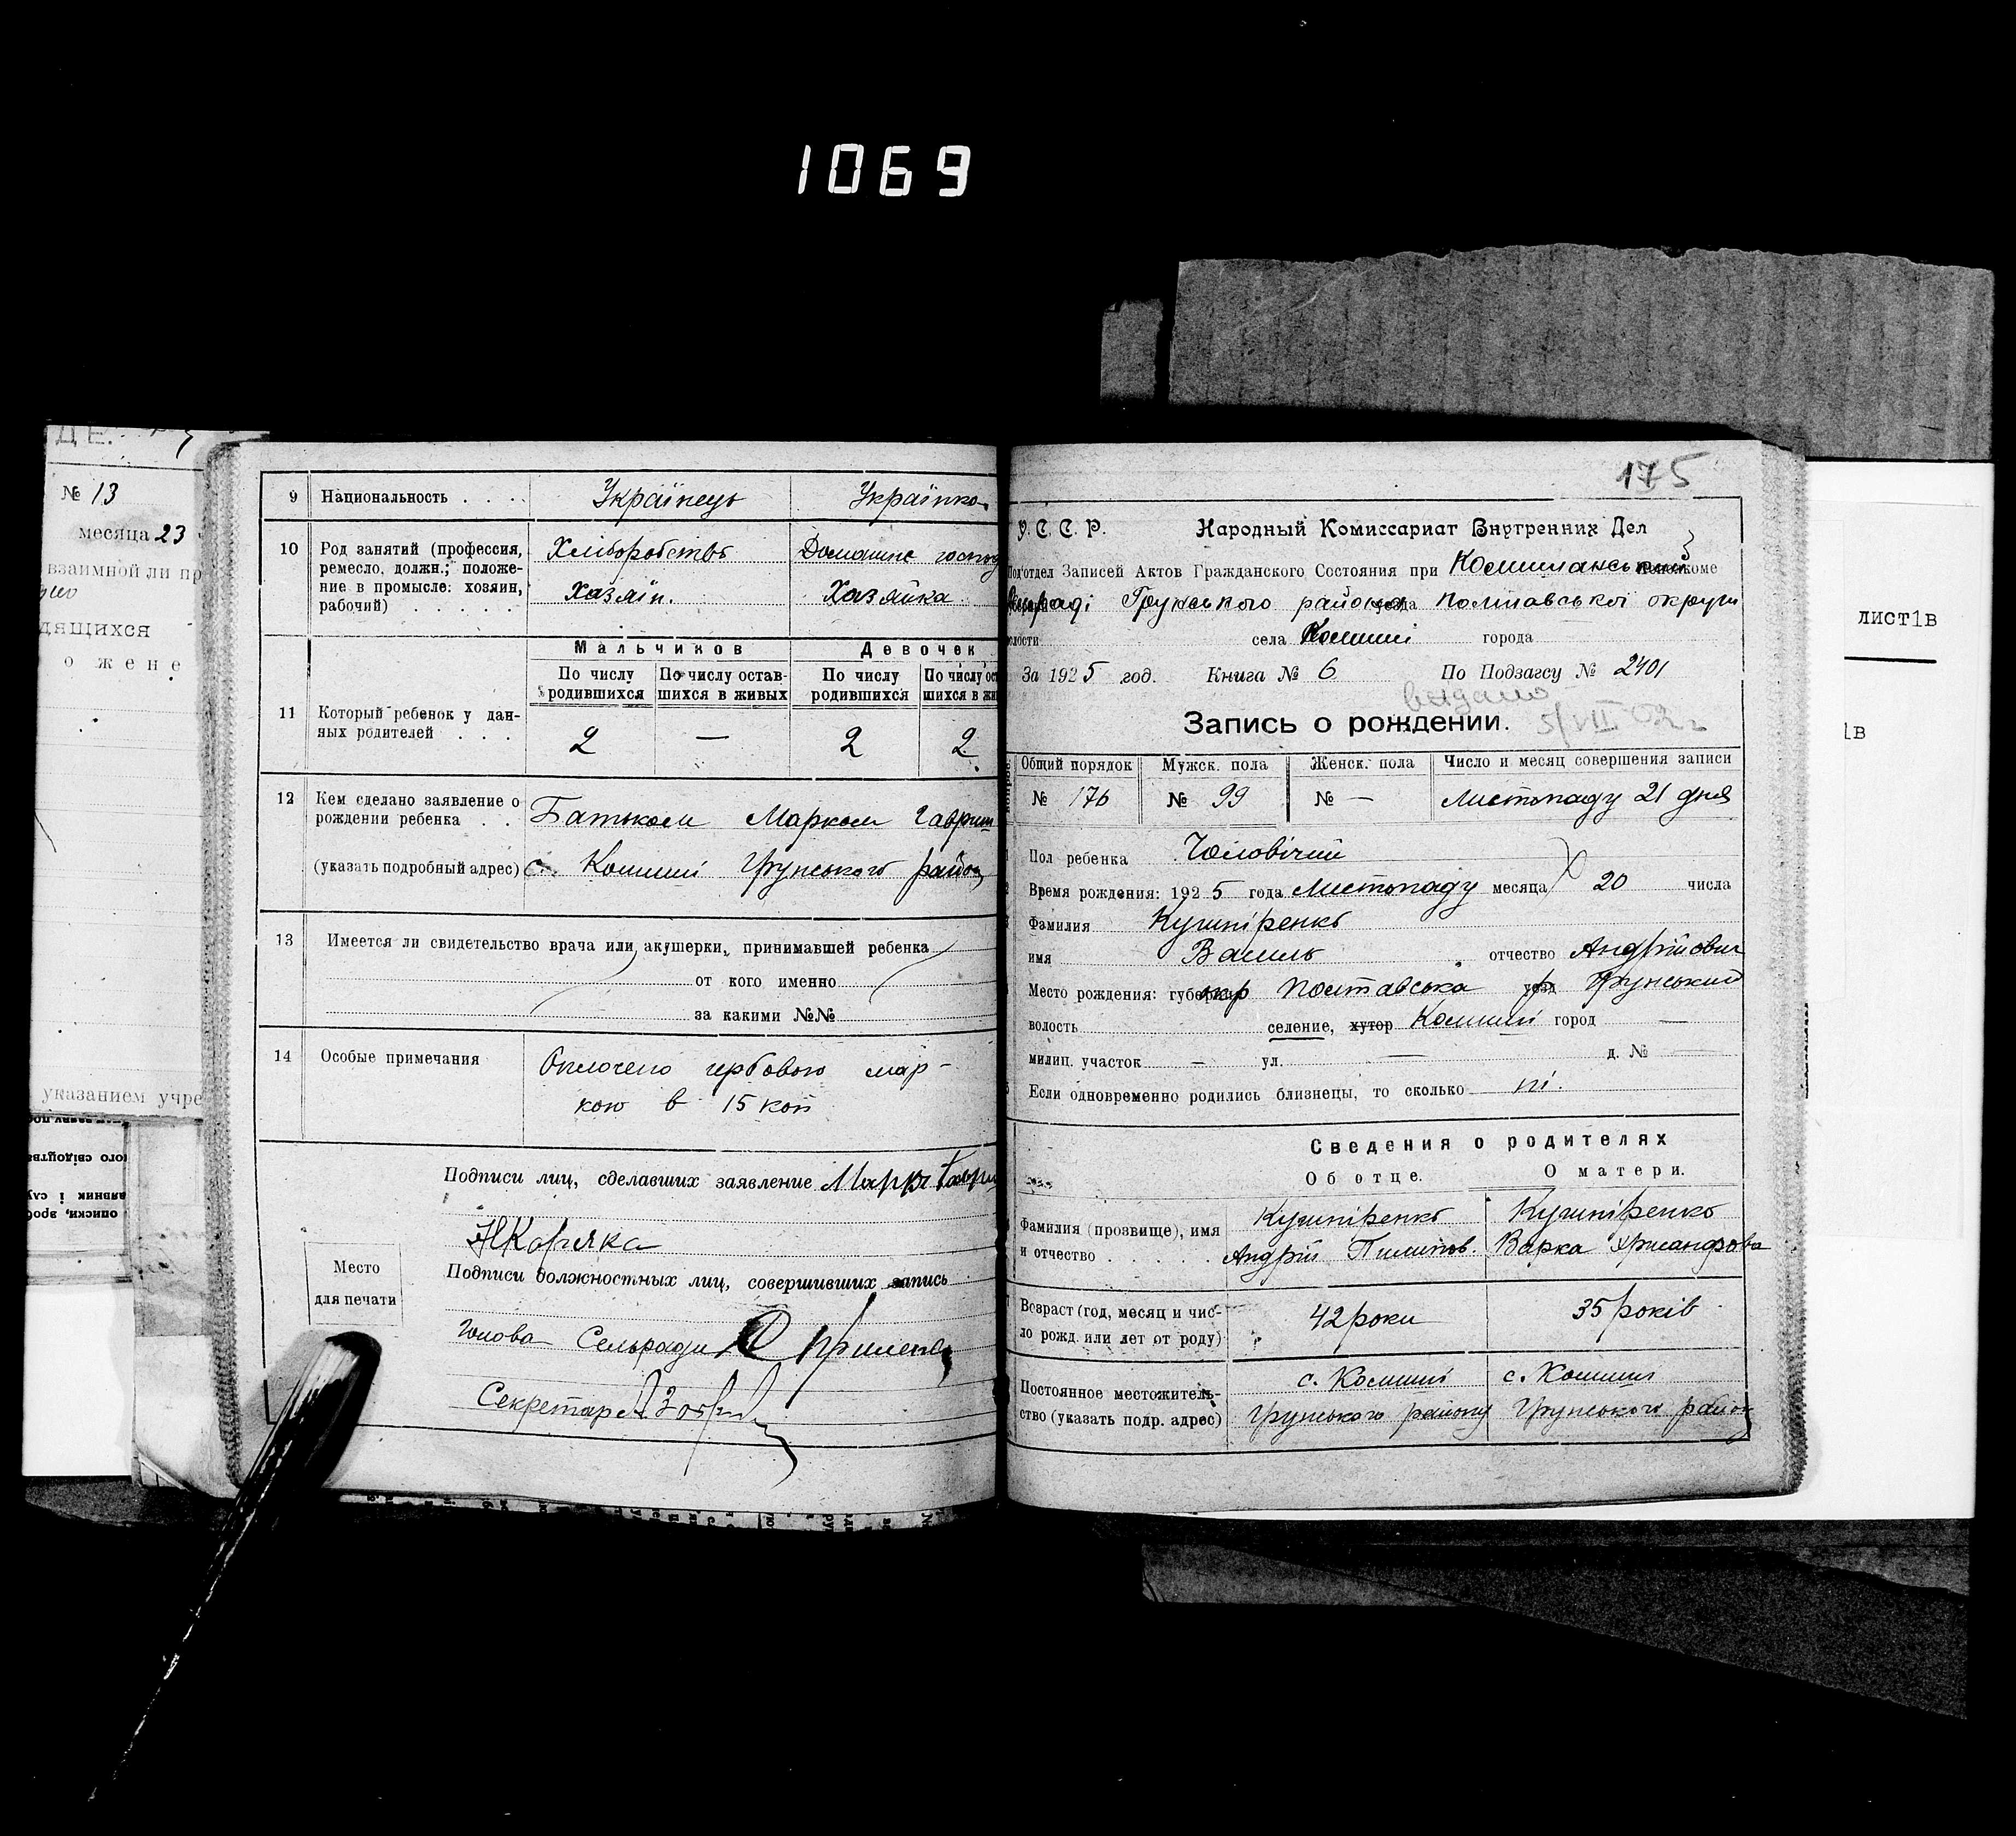 1069
ДЕ.
№ 13
месяца 23
взаимной ли пр
дящихся
о жене
указанием учре
9 Национальность . . . . Українець Українка
10 Род занятий (профессия, ремесло, должн.; положение в промысле: хозяин, рабочий) . . . . .
Хліборобство Домашнє господ
Хазяїн. Хазяйка
Мальчиков Девочек
По числу родившихся По числу оставшихся в живых По числу родившихся По числу ос шихся в жи
11 Который ребенок у данных родителей . . .
2 — 2 2
12 Кем сделано заявление о рождении ребенка . .
Батьком Марком Гавриш
(указать подробный адрес) с. Комиші Грунського району
13 Имеется ли свидетельство врача или акушерки, принимавшей ребенка
от кого именно
за какими №№
14 Особые примечания Оплочено гербовою мар-
кою в 15 коп
Подписи лиц, сделавших заявление Марко Гаври
НКоряка
Место для печати
Подписи должностных лиц, совершивших запись
Голова Сельради
Секретар
175
У. С. С. Р. Народный Комиссариат Внутренних Дел
Подотдел Записей Актов Гражданского Состояния при Комишанській
сільраді Грунського району Полтавської округи
лости села Комиші города
За 1925 год. Книга № 6 По Подзагсу № 2401
видано
Запись о рождении. 5/VII 52 г
Общий порядок Мужск. пола Женск. пола Число и месяц совершения записи
№ 176 № 99 № — Листопаду 21 дня
Пол ребенка Чоловічий
Время рождения: 1925 года Листопаду месяца 20 числа
Фамилия Кушніренко
имя Василь отчество Андрійович
Место рождения: губерния окр Полтавська уезд р Грунський
волость селение, хутор Комиші город —
милиц. участок — ул. — д. № —
Если одновременно родились близнецы, то сколько ні.
Сведения о родителях
Об отце. О матери.
Фамилия (прозвище), имя и отчество . . . . .
Кушніренко Кушніренко
Андрій Пилипов. Варка Хрисанфова
Возраст (год, месяц и число рожд. или лет от роду) 42 роки 35 років
Постоянное местожительство (указать подр. адрес)
с. Комиші с. Комиші
Грунського району Грунського району
лист1в
1в